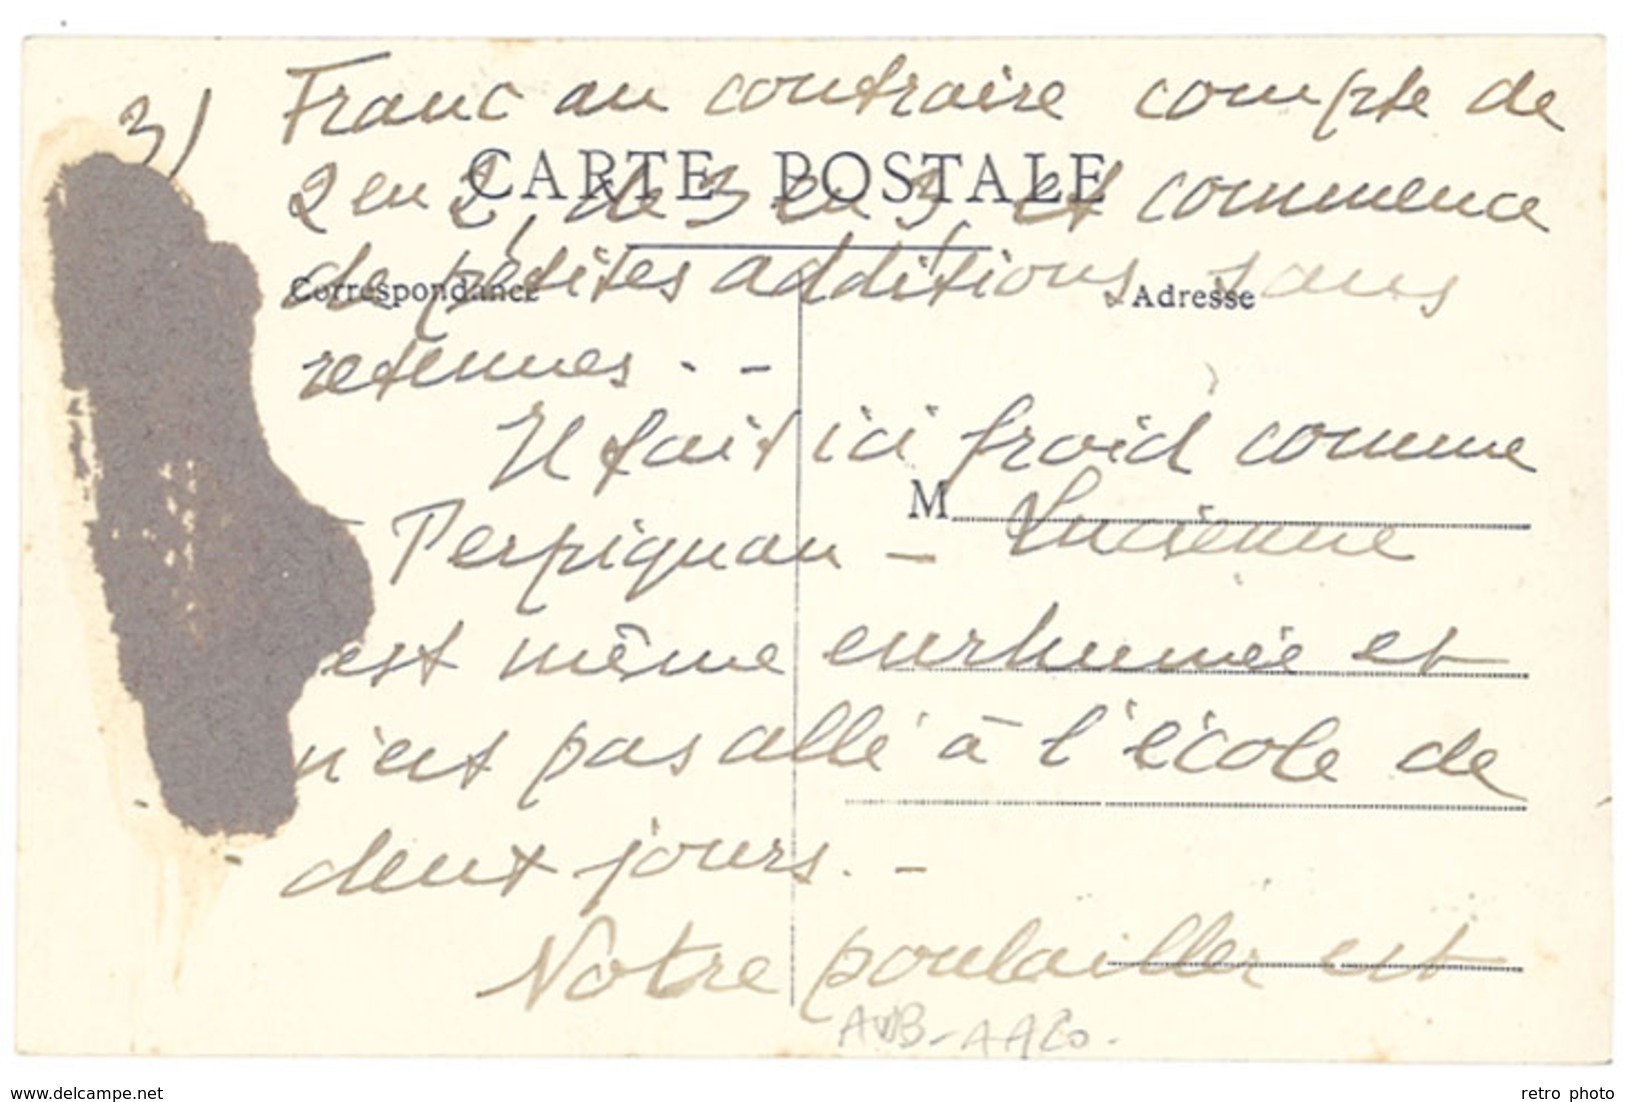 3) Franc au contraire compte de
CARTE POSTALE
2 en 2, de 3 en 3 et commence
Correspondance
Adresse
de petites additions sans
retenues . -
Il fait ici froid comme
M
à Perpignan - Lucienne
est même enrhumée et
n'est pas allé à l'école de
deux jours. -
Notre poulailler est
www.delcampe.net
retro photo